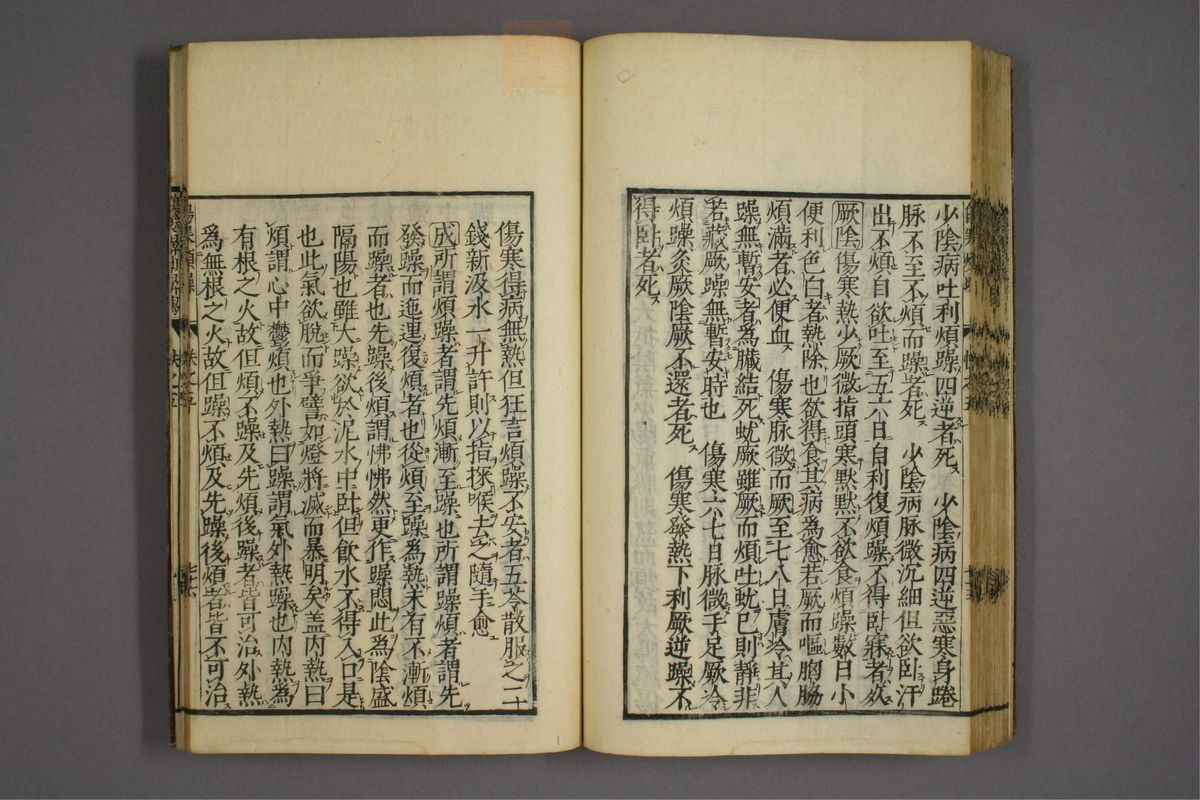 少陰病吐利煩躁四逆者死 少陰病四逆惡寒身踡
脉不至不煩而躁者死 少陰病脉微沉細但欲臥汗
出不煩自欲吐至五六日自利復煩躁不得臥寐者死
厥陰傷寒熱少厥微指頭寒黙黙不欲食煩躁數日小
便利色白者熱除也欲得食其病爲愈若厥而嘔胸脇
煩滿者必便血 傷寒脉微而厥至七八日膚冷其人
躁無暫安者爲臓結死蚘厥雖厥而煩吐蚘已則靜非
若藏厥躁無暫安時也 傷寒六七日脉微手足厥冷
煩躁灸厥陰厥不還者死 傷寒發熱下利厥逆躁不
得臥者死
傷寒得病無熱但狂言煩躁不安者五苓散服之二
錢新汲水一升許則以指探喉去之隨手愈
成所謂煩躁者謂先煩漸至躁也所謂躁煩者謂先
發躁而迤逦復煩者也從煩至躁爲熱未有不漸煩
而躁者也先躁後煩謂怫怫然更作躁悶此爲陰盛
隔陽也雖大躁欲於泥水中臥但飲水不得入口是
也此氣欲脱而爭譬如燈將滅而暴明矣盖内熱曰
煩謂心中鬱煩也外熱曰躁謂氣外熱躁也内熱爲
有根之火故但煩不躁及先煩後躁者皆可治外熱
爲無根之火故但躁不煩及先躁後煩者皆不可治